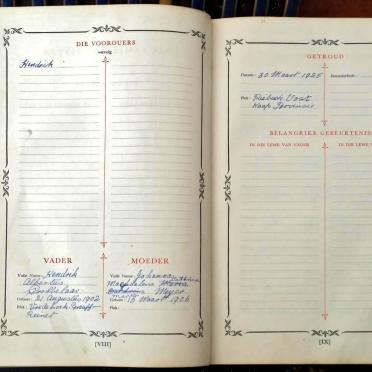 DIE VOOROUERS
vervolg
Hendrik
VADER
MOEDER
Volle Name: Hendrik
Albertus
Gebore: 21 Augustus 1902
Plek:
Reinet
Volle Name: Johanna
Magdalena Maria
Meyer
Maria
Gebore: 19 Maart 1906
Plek:
[VIII]
GETROUD
Datum: 30 Maart 1925
Plek: Riebeek Oost
Kaap Provinsie
BELANGRIKE GEBEURTENIS
IN DIE LEWE VAN VADER
IN DIE LEWE VAN
[IX]